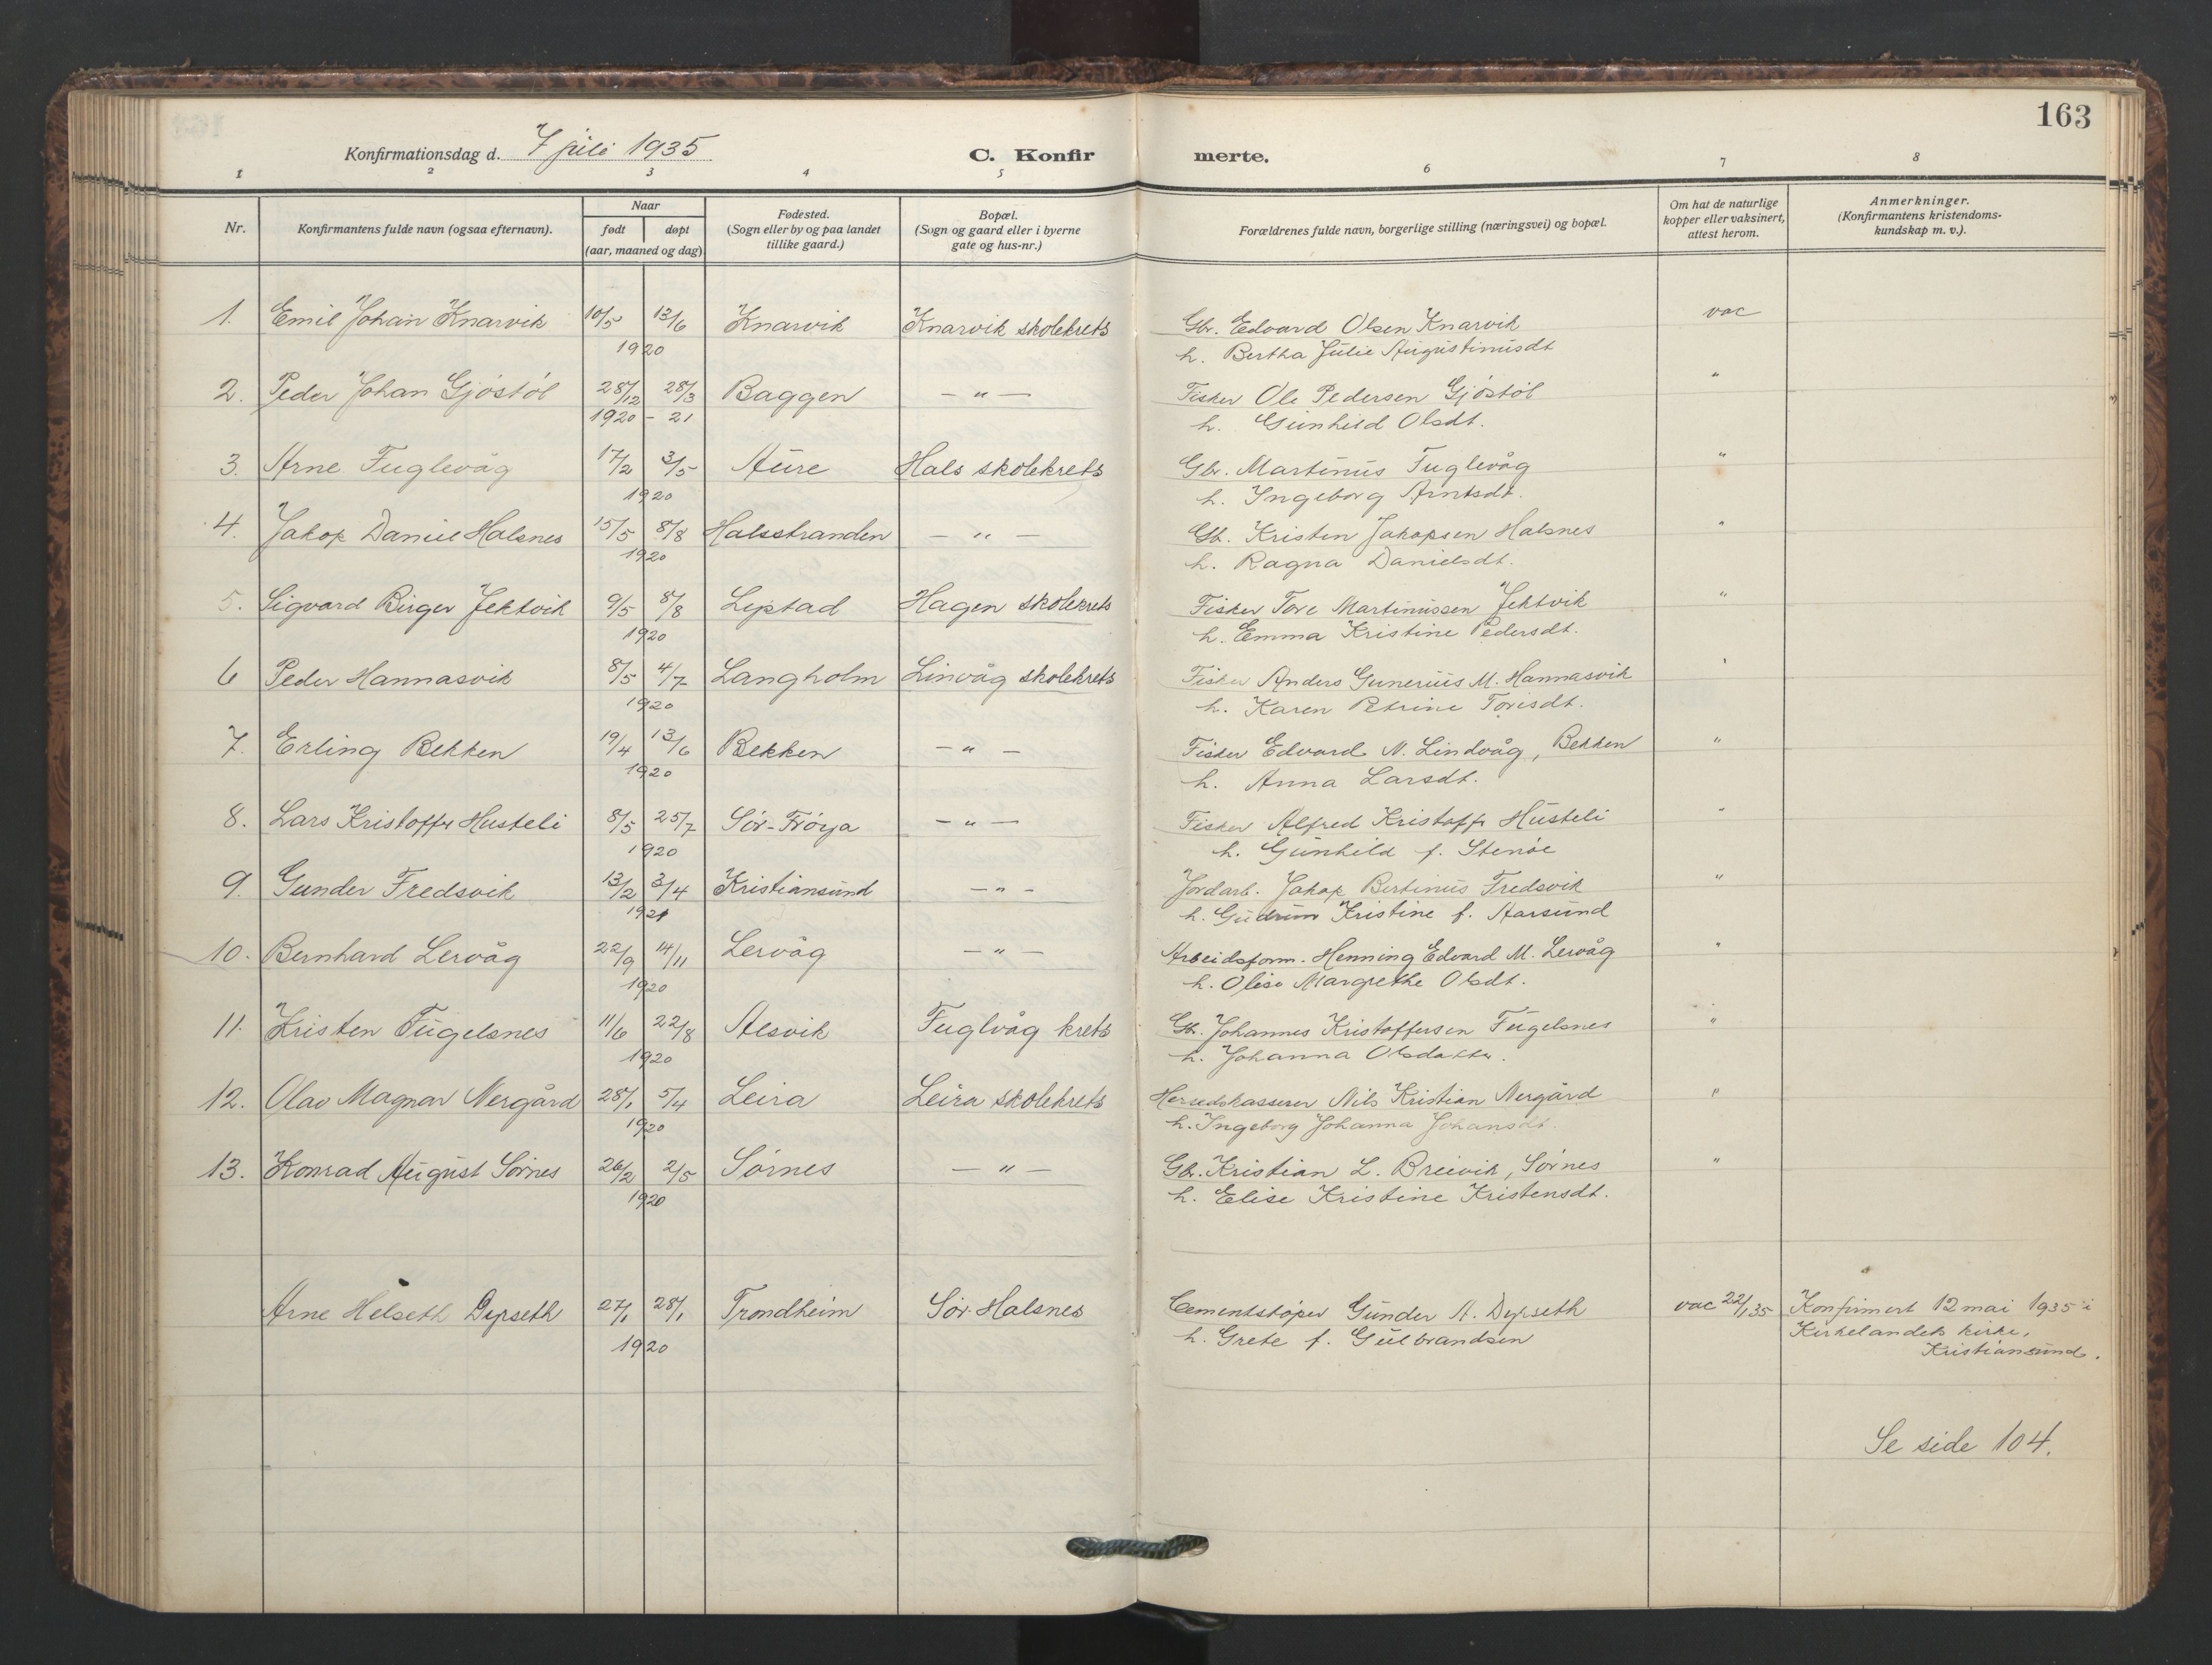 163
Konfirmationsdag d. 7 juli 1935 C. Konfirmerte.
1 2 3 4 5 6 7 8
Nr. Konfirmantens fulde navn (ogsaa efternavn). Naar født døpt (aar, maaned og dag) Fødested. (Sogn eller by og paa landet tillike gaard.) Bopæl. (Sogn og gaard eller i byerne gate og hus-nr.) Forældrenes fulde navn, borgerlige stilling (næringsvei) og bopæl. Om hat de naturlige kopper eller vaksinert, attest herom. Anmerkninger. (Konfirmantens kristendoms-kundskap m. v.).
1. Emil Johan Knarvik 10/5 13/6 Knarvik Knarvik skolekrets Gbr. Edvard Olsen Knarvik vac
1920 h. Bertha Julie Augustinusdt
2. Peder Johan Gjøstøl 28/12 28/3 Baggen — " — Fisker Ole Pedersen Gjøstøl "
1920 - 21 h. Gunhild Olsdt.
3. Arne Fuglevåg 17/2 3/5 Aure Hals skolekrets Gbr. Martinus Fuglevåg "
1920 h. Ingeborg Arntsdt.
4. Jakop Daniel Halsnes 15/5 8/8 Halsstranden — " — Gb. Kristen Jakopsen Halsnes "
1920 h. Ragna Danielsdt.
5. Sigvard Birger Jektvik 9/5 8/8 Leptad Hagen skolekrets Fisker Tore Martinussen Jektvik "
1920 h. Emma Kristine Pedersdt.
6 Peder Hannasvik 8/5 4/7 Langholm Linvåg skolekrets Fisker Anders Gunerius M. Hannasvik "
1920 h. Karen Petrine Torisdt.
7. Erling Bekken 19/4 13/6 Bekken — " — Fisker Edvard N. Lindvåg, Bekken "
1920 h. Anna Larsdt.
8. Lars Kristoffr Husteli 8/5 25/7 Sør-Frøya — " — Fisker Alfred Kristoffr Husteli "
1920 h. Gunhild f. Stenøe
9. Gunder Fredsvik 13/2 3/4 Kristiansund — " — Jordarb. Jakop Bertinus Fredsvik "
1921 h. Gudrun Kristine f. Aarsund
10. Bernhard Lervåg 22/9 14/11 Lervåg — " — Arbeidsform. Henning Edvard M. Lervåg "
1920 h. Olise Margrethe Olsdt.
11. Kristen Fugelsnes 11/6 22/8 Alsvik Fuglvåg krets Gbr. Johannes Kristoffersen Fugelsnes "
1920 h. Johanna Olsdatter.
12. Olav Magnar Nergård 28/1 5/4 Leira Leira skolekrets Herredskasserer Nils Kristian Nergård "
1920 h. Ingeborg Johanna Johansdt.
13. Konrad August Sørnes 26/2 2/5 Sørnes — " — Gbr. Kristian L. Breivik, Sørnes "
1920 h. Elise Kristine Kristensdt.
Arne Helseth Dyrseth 27/1 28/1 Trondheim Sør-Halsnes Cementstøper Gunder A. Dyrseth vac 22/1 35 Konfirmert 12 mai 1935 i
1920 h. Grete f. Gulbrandsen Kirkelandets kirke,
Kristiansund.
Se side 104.